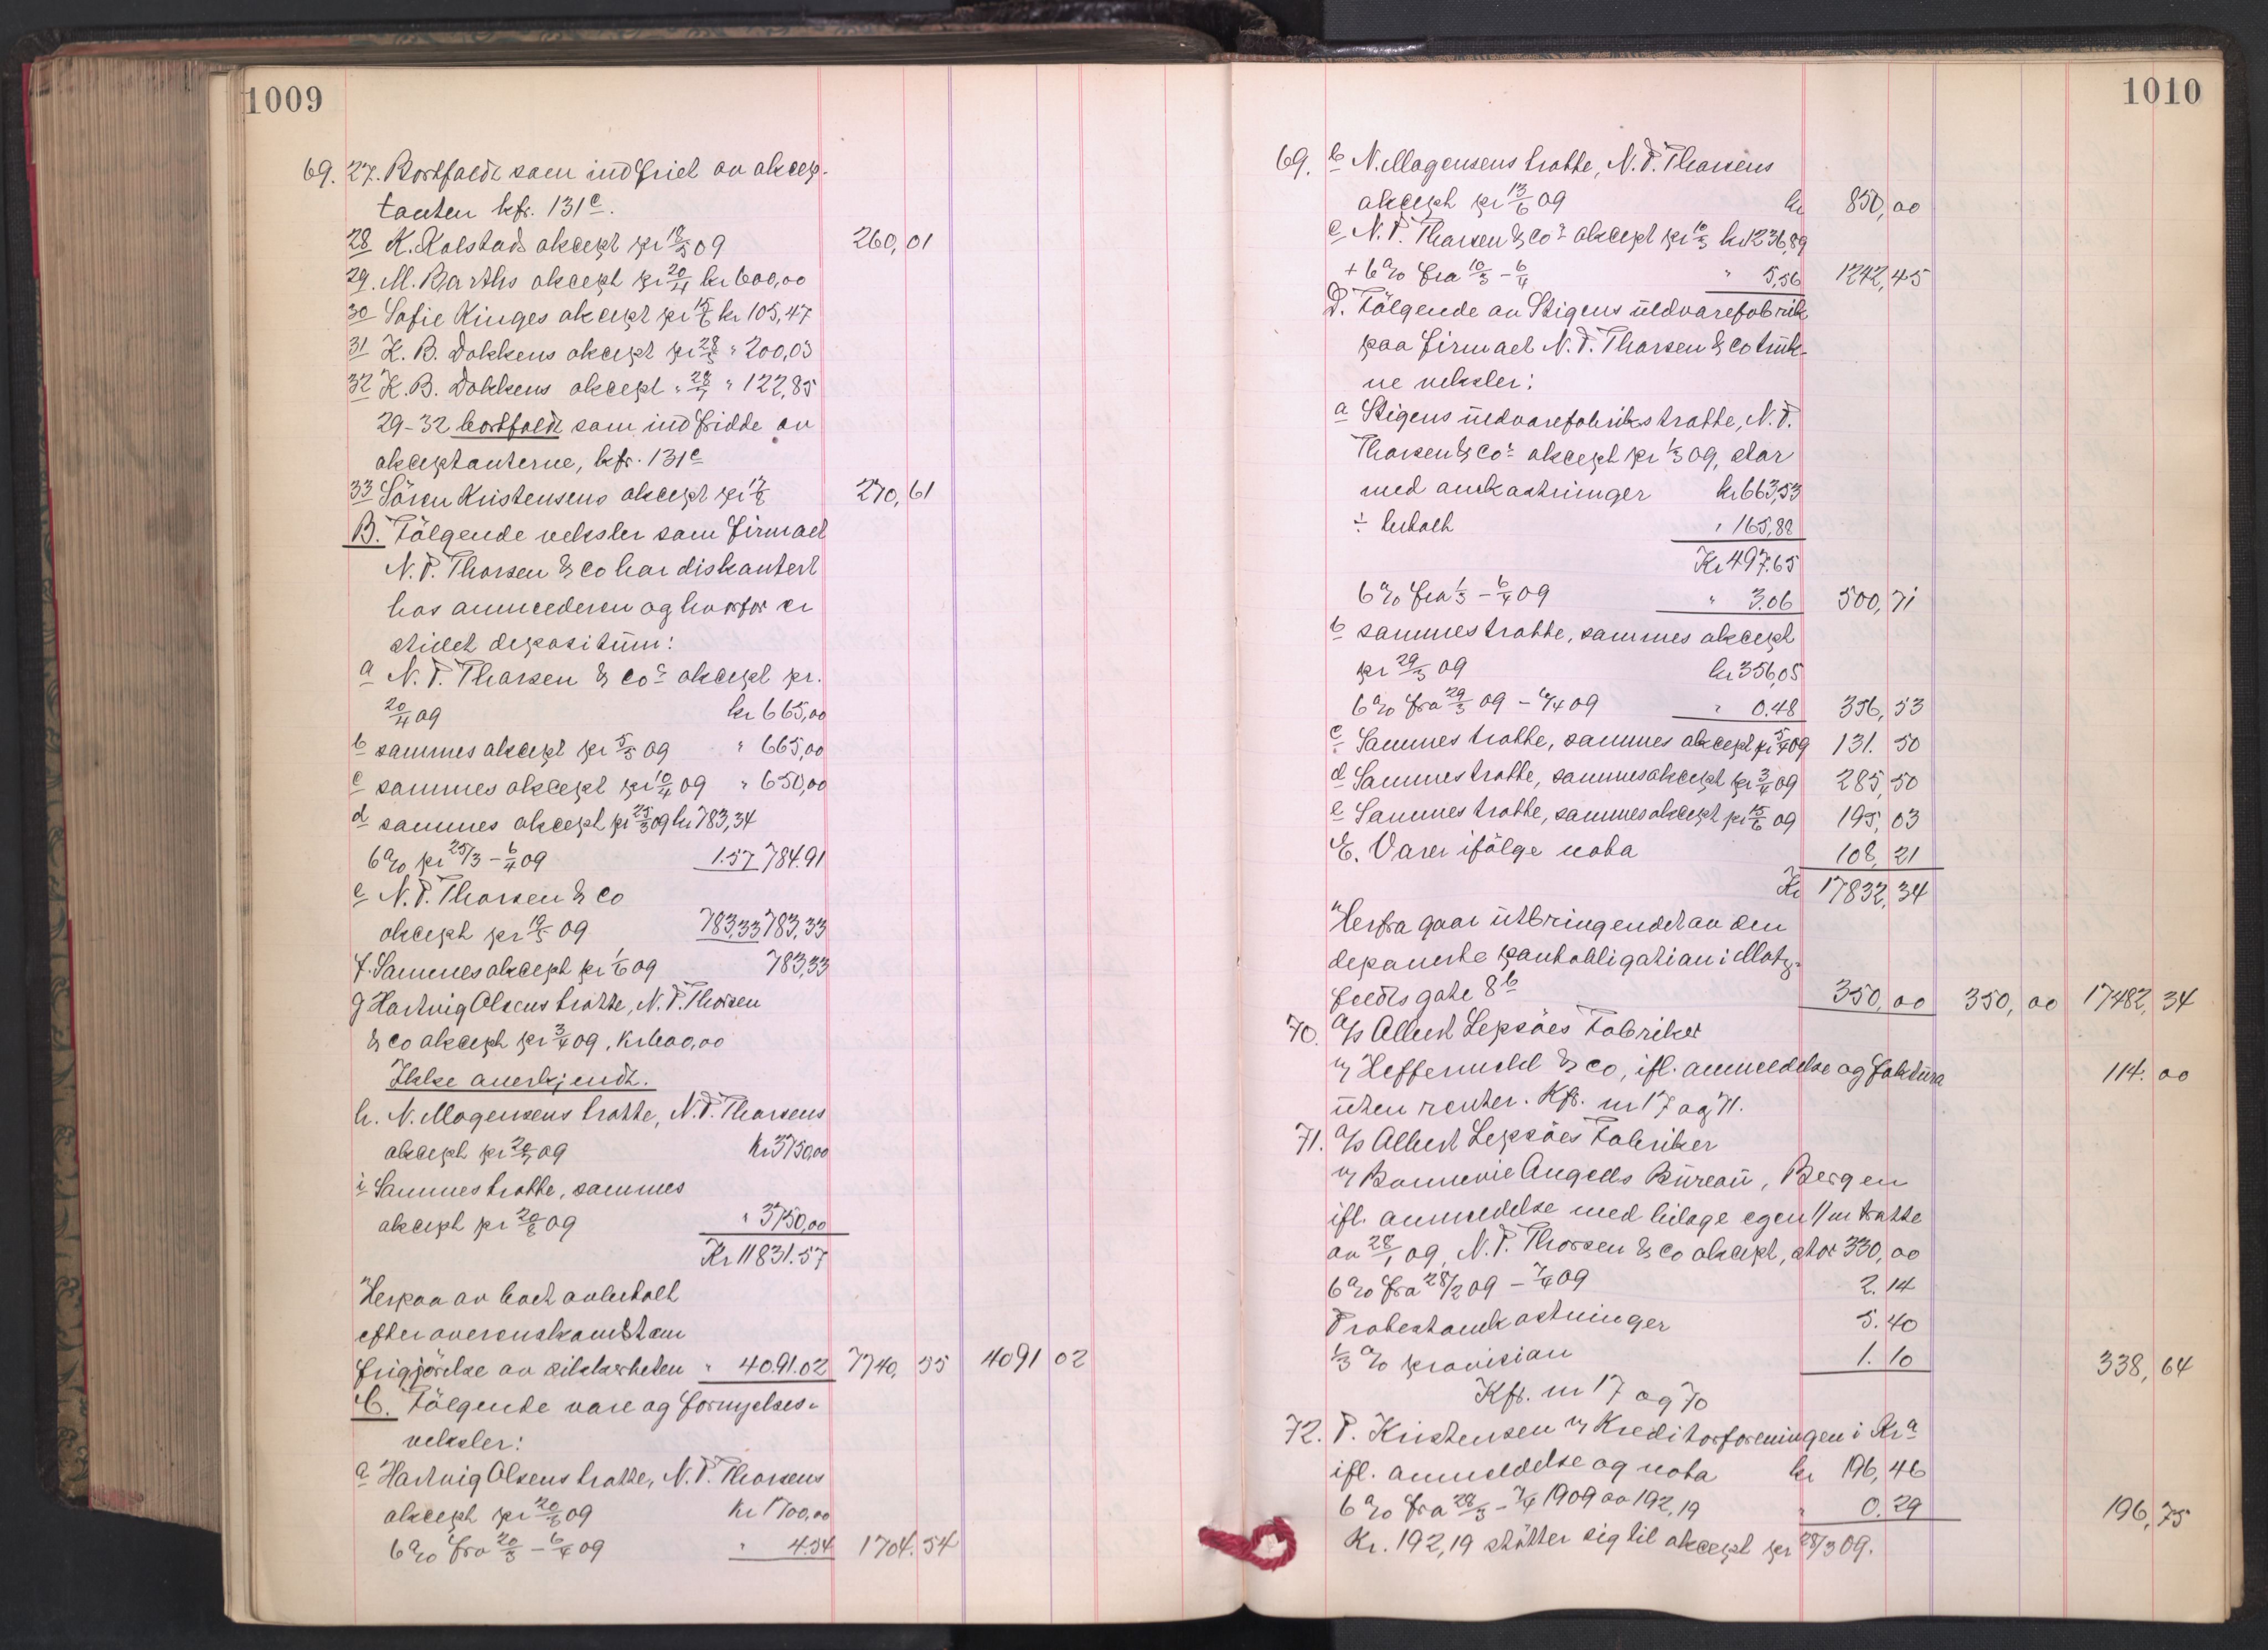 1009
69. 27. Bortfaldt som indfriet av aksep-
tanten kfr. 131c.
28 K. Kolstads aksept pr 18/3 09 260,01
29. M. Barths aksept pr 20/4 kr 600,00
30 Sofie Kinges aksept pr 15/6 kr 105,47
31 K. B. Dokkens aksept pr 28/5 " 200,03
32 K. B. Dokkens aksept " 28/7 " 122,85
29-32 bortfaldt som indfridde av
akseptanterne, kfr. 131c
33 Sören Kristensens aksept pr 17/8 270,61
B. Fölgende veksler som firmaet
N. P. Thorsen & Co har diskontert
hos anmelderen og hvorfor er
stillet depositum:
a N. P. Thorsen & Cos aksept pr.
20/4 09 kr 665,00
b sammes aksept pr 5/5 09 " 665,00
c sammes aksept pr 10/4 09 " 650,00
d sammes aksept pr 25/3 09 kr 783,34
6% pr 25/3 - 6/4 09 1.57 784.91
e N. P. Thorsen & Co
aksept pr 19/5 09 783,33 783,33
f. Sammes aksept pr 1/6 09 783,33
g Hartvig Olsens tratte, N. P. Thorsen
& Co aksept pr 3/4 09, kr 600,00
Ikke anerkjendt.
h. N. Mogensens tratte, N. P. Thorsens
aksept pr 20/7 09 kr 3750,00
i Sammes tratte, sammes
aksept pr 20/8 09 " 3750,00
Kr 11831.57
Herpaa av boet avbetalt
efter overenskomst om
frigjörelse av sikkerheten " 4091.02 7740,55 4091 02
C. Fölgende vare og fornyelses-
veksler:
a Hartvig Olsens tratte, N. P. Thorsens
aksept pr 20/3 09 kr 1700,00
6% fra 20/3 - 6/4 09 " 4.54 1704.54
1010
69. b N. Mogensens tratte, N. P. Thorsens
aksept pr 13/6 09 kr 850,00
c N. P. Thorsen & Cos aksept pr 10/3 kr 1236,89
+ 6% fra 10/3 - 6/4 " 5,56 1242,45
D. Fölgende av Stigens uldvarefabrik
paa firmaet N. P. Thorsen & Co truk-
ne veksler:
a Stigens uldvarefabriks tratte, N. P.
Thorsen & Cos aksept pr 1/3 09, stor
med omkostninger kr 663,53
÷ betalt " 165,88
Kr 497.65
6% fra 1/3 - 6/4 09 " 3.06 500,71
b sammes tratte, sammes aksept
pr 29/3 09 kr 356,05
6% fra 29/3 09 - 6/4 09 " 0.48 356,53
c Sammes tratte, sammes aksept pr 5/4 09 131.50
d Sammes tratte, sammes aksept pr 3/4 09 285,50
e Sammes tratte, sammes aksept pr 15/6 09 195,03
E. Varer ifölge nota 108,21
Kr 17832,34
Herfra gaar utbringendet av den
deponerte pantobligation i Motz-
feldts gate 8b 350,00 350,00 17482,34
70. A/S Albert Lepsöes Fabriker
v/ Heffermehl & Co, ifl. anmeldelse og faktura 114.00
uten renter. Kfr. nr 17 og 71.
71. A/S Albert Lepsöes Fabriker
v/ Bonnevie Angells Bureau, Bergen
ifl. anmeldelse med bilage egen 1/m tratte
av 28/1 09, N. P. Thorsen & Co aksept, stor 330,00
6% fra 28/2 09 - 7/4 09 2.14
Protestomkostninger 5.40
1/3 % provision 1.10 338,64
Kfr. nr 17 og 70
72. P. Kristensen v/ Kreditorforeningen i Kra
ifl. anmeldelse og nota kr 196,46
6% fra 28/3 - 7/4 1909 av 192,19 " 0.29 196,75
Kr. 192,19 støtter sig til aksept pr 28/3 09.